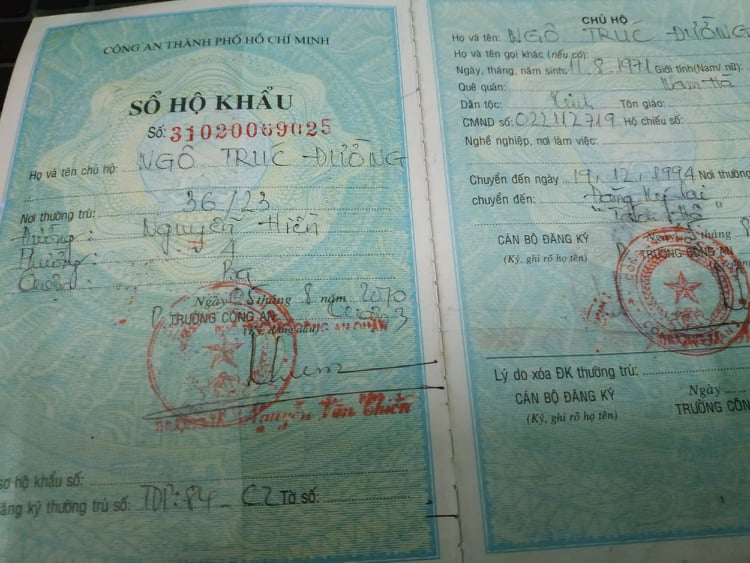 CÔNG AN THÀNH PHỐ HỒ CHÍ MINH
SỔ HỘ KHẨU
Số: 31020069025
Họ và tên chủ hộ: NGÔ TRÚC ĐƯỜNG
36/23
Nơi thường trú:
Đường: Nguyễn Hiền
Phường: 4
Quận: Ba
Ngày 25 tháng 8 năm 2010
TRƯỞNG CÔNG AN Quận 3
Nguyễn Văn Thiền
sơ hộ khẩu số:
ăng ký thường trú số: TDP: 84 - C2 Tờ số:
CHỦ HỘ
Họ và tên: NGÔ TRÚC ĐƯỜNG
Họ và tên gọi khác (nếu có):
Ngày, tháng, năm sinh: 11.8.1971 Giới tính (Nam/ nữ):
Quê quán: Nam Hà
Dân tộc: Kinh Tôn giáo:
CMND số: 022112719 Hộ chiếu số:
Nghề nghiệp, nơi làm việc:
Chuyển đến ngày 19.12.1994 Nơi thường
chuyển đến: Đăng ký lại
"Tách hộ"
CÁN BỘ ĐĂNG KÝ
(Ký, ghi rõ họ tên)
tháng 8
TRƯỞNG CÔNG AN
Lý do xóa ĐK thường trú:
CÁN BỘ ĐĂNG KÝ
(Ký, ghi rõ họ tên)
Ngày
TRƯỞNG CÔN
1